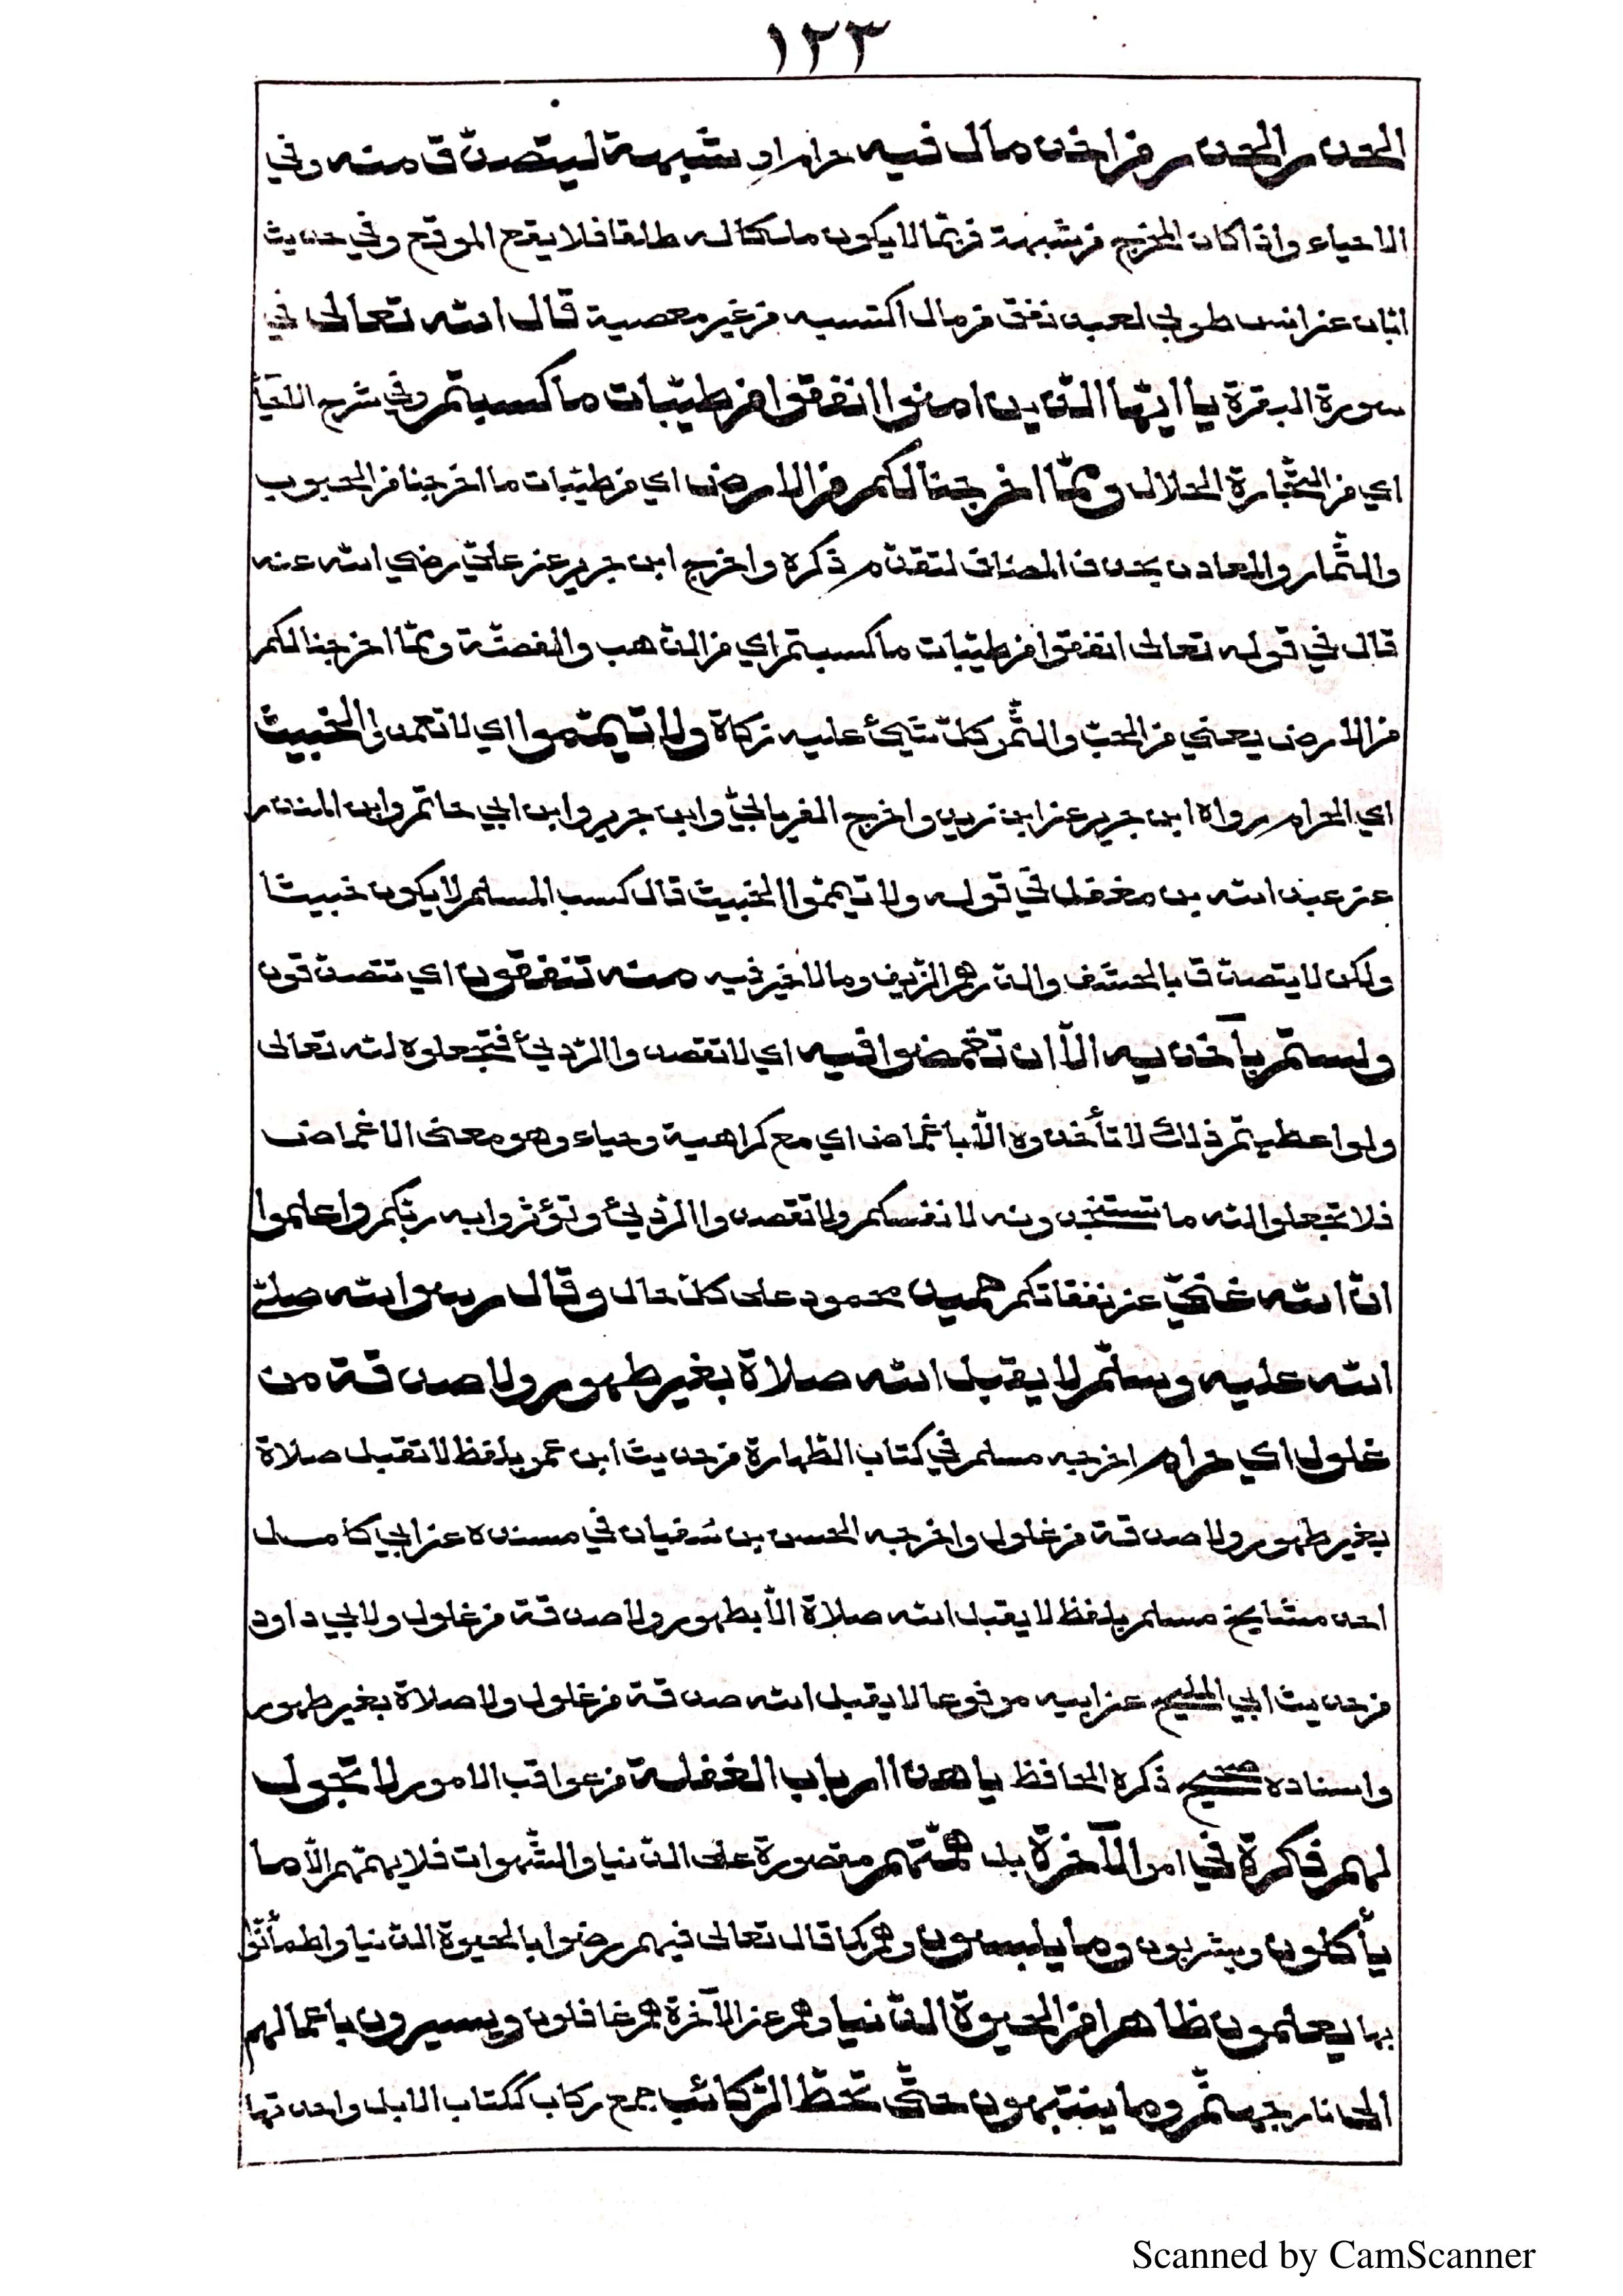 ١٢٣
الحذر الحذر من اخذ مال فيه حرام او شبهة ليتصدّق منه وفي
الاحياء واذا كان المخرج من شبهة فربّما لا يكون ملكا له طلقا فلا يقع الموقع وفي حديث
ابّان عن انس طوبى لعبد نفق من مال اكتسبه من غير معصية قال الله تعالى في
سورة البقرة يا ايّها الّذين امنوا انفقوا من طيّبات ما كسبتم وفي شرح
اي من التّجارة الحلال وممّا اخرجنا لكم من الارض اي من طيّبات ما اخرجنا من الحبوب
والثّمار والمعادن بحذف المضاف لتقدّم ذكره واخرج ابن جرير عن عليّ رضي الله عنه
قال في قوله تعالى انفقوا من طيّبات ما كسبتم اي من الذّهب والفضّة وممّا اخرجنا لكم
من الارض يعني من الحبّ والثّمر كلّ شيئ عليه زكاة ولا تيمّموا اي لا تعمدوا الخبيث
اي الحرام رواه ابن جرير عن ابن زيد واخرج الفريابيّ وابن جرير وابن ابي حاتم وابن المنذر
عن عبد الله بن مغفل في قوله ولا تيمّموا الخبيث قال كسب المسلم لا يكون خبيثا
ولكن لا يتصدّق بالحشف والدّرهم الزّيف وما لا خير فيه منه تنفقون اي تتصدّقون
ولستم بآخذيه الّا ان تغمضوا فيه اي لا تقصدوا الرّديئ فتجعلوه لله تعالى
ولو اعطيتم ذلك لا تأخذوه الّا باغماض اي مع كراهية وحياء وهو معنى الاغماض
فلا تجعلوا لله ما تستخبدونه لانفسكم ولا تقصدوا الرّديئ وتؤثروا به ربّكم واعلموا
انّ الله غنيّ عن نفقاتكم حميد محمود على كلّ حال وقال رسول الله صلّى
الله عليه وسلّم لا يقبل الله صلاة بغير طهور ولا صدقة من
غلول اي حرام اخرجه مسلم في كتاب الطّهارة من حديث ابن عمر بلفظ لا تقبل صلاة
بغير طهور ولا صدقة من غلول واخرجه الحسن بن سُفيان في مسنده عن ابي كامل
احد مشايخ مسلم بلفظ لا يقبل الله صلاة الّا بطهور ولا صدقة من غلول ولابي داود
من حديث ابي المليح عن ابيه مرفوعا لا يقبل الله صدقة من غلول ولا صلاة بغير طهور
واسناده صحيح ذكره الحافظ يا هذا ارباب الغفلة من عواقب الامور لا تجول
لهم فكرة في امر الآخرة بل همّتهم مقصورة على الدّنيا والشّهوات فلا يهمّهم الّا ما
يأكلون ويشربون وما يلبسون وهم كما قال تعالى فيهم رضوا بالحيوة الدّنيا واطمأنّوا
بها يعلمون ظاهرا من الحيوة الدّنيا وهم عن الآخرة هم غافلون ويسيرون باعمالهم
الى نار جهنّم وما ينتبهون حتّى تحطّ الرّكائب جمع ركاب ككتاب الابل واحدتها
Scanned by CamScanner